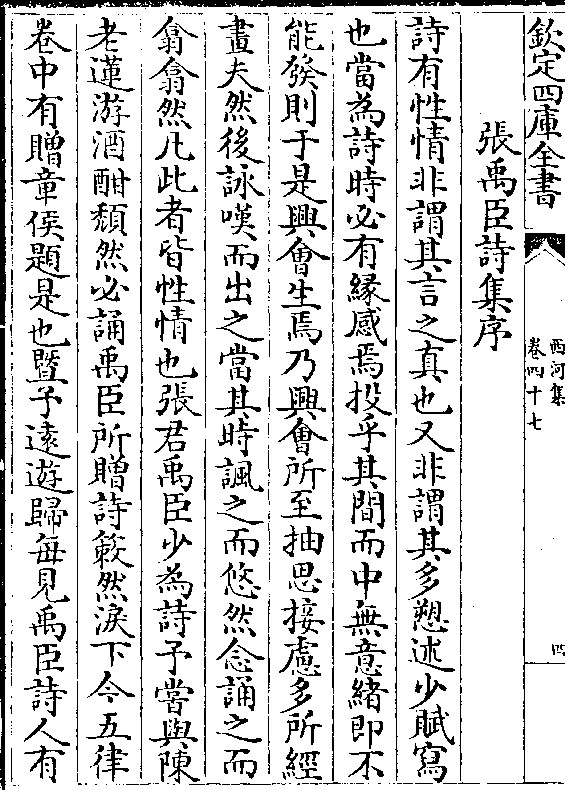 欽定四庫全書
西河集
卷四十七
四
張禹臣詩集序
詩有性情非謂其言之真也又非謂其多愬述少賦寫
也當為詩時必有緣感焉投乎其間而中無意緒即不
能發則于是興會生焉乃興會所至抽思接慮多所經
畫夫然後詠嘆而出之當其時諷之而悠然念誦之而
翕翕然凡此者皆性情也張君禹臣少為詩予嘗與陳
老蓮游酒酣頹然必誦禹臣所贈詩簌然淚下今五律
卷中有贈章侯題是也暨予遠遊歸每見禹臣詩人有